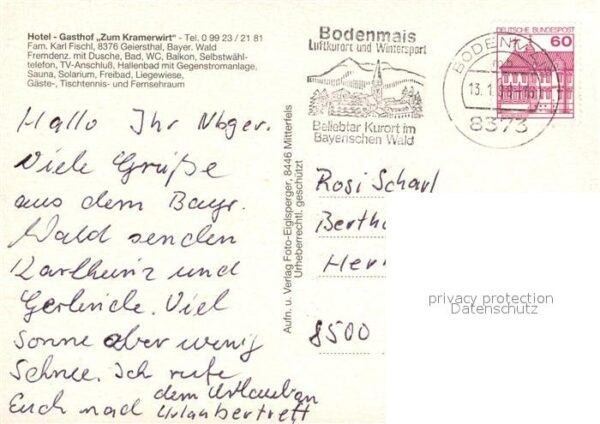 Hotel - Gasthof „Zum Kramerwirt“ - Tel. 0 99 23 / 21 81
Fam. Karl Fischl, 8376 Geiersthal, Bayer. Wald
Fremdenz. mit Dusche, Bad, WC, Balkon, Selbstwähl-
telefon, TV-Anschluß, Hallenbad mit Gegenstromanlage,
Sauna, Solarium, Freibad, Liegewiese,
Gäste-, Tischtennis- und Fernsehraum
Hallo Ihr Nbger.
Viele Grüße
aus dem Bayr.
Wald senden
Karlheinz und
Gerlinde. Viel
Sonne aber wenig
Schnee. Ich rufe
Euch nach dem Urlaub an
Aufn. u. Verlag Foto-Eiglsperger, 8446 Mitterfels
Urheberrechtl. geschützt
Bodenmais
Luftkurort und Wintersport
Beliebter Kurort im
Bayerischen Wald
BODENMAIS
13.1.
8373
DEUTSCHE BUNDESPOST
60
Rosi Scharl
Berth
Her
8500
privacy protection
Datenschutz